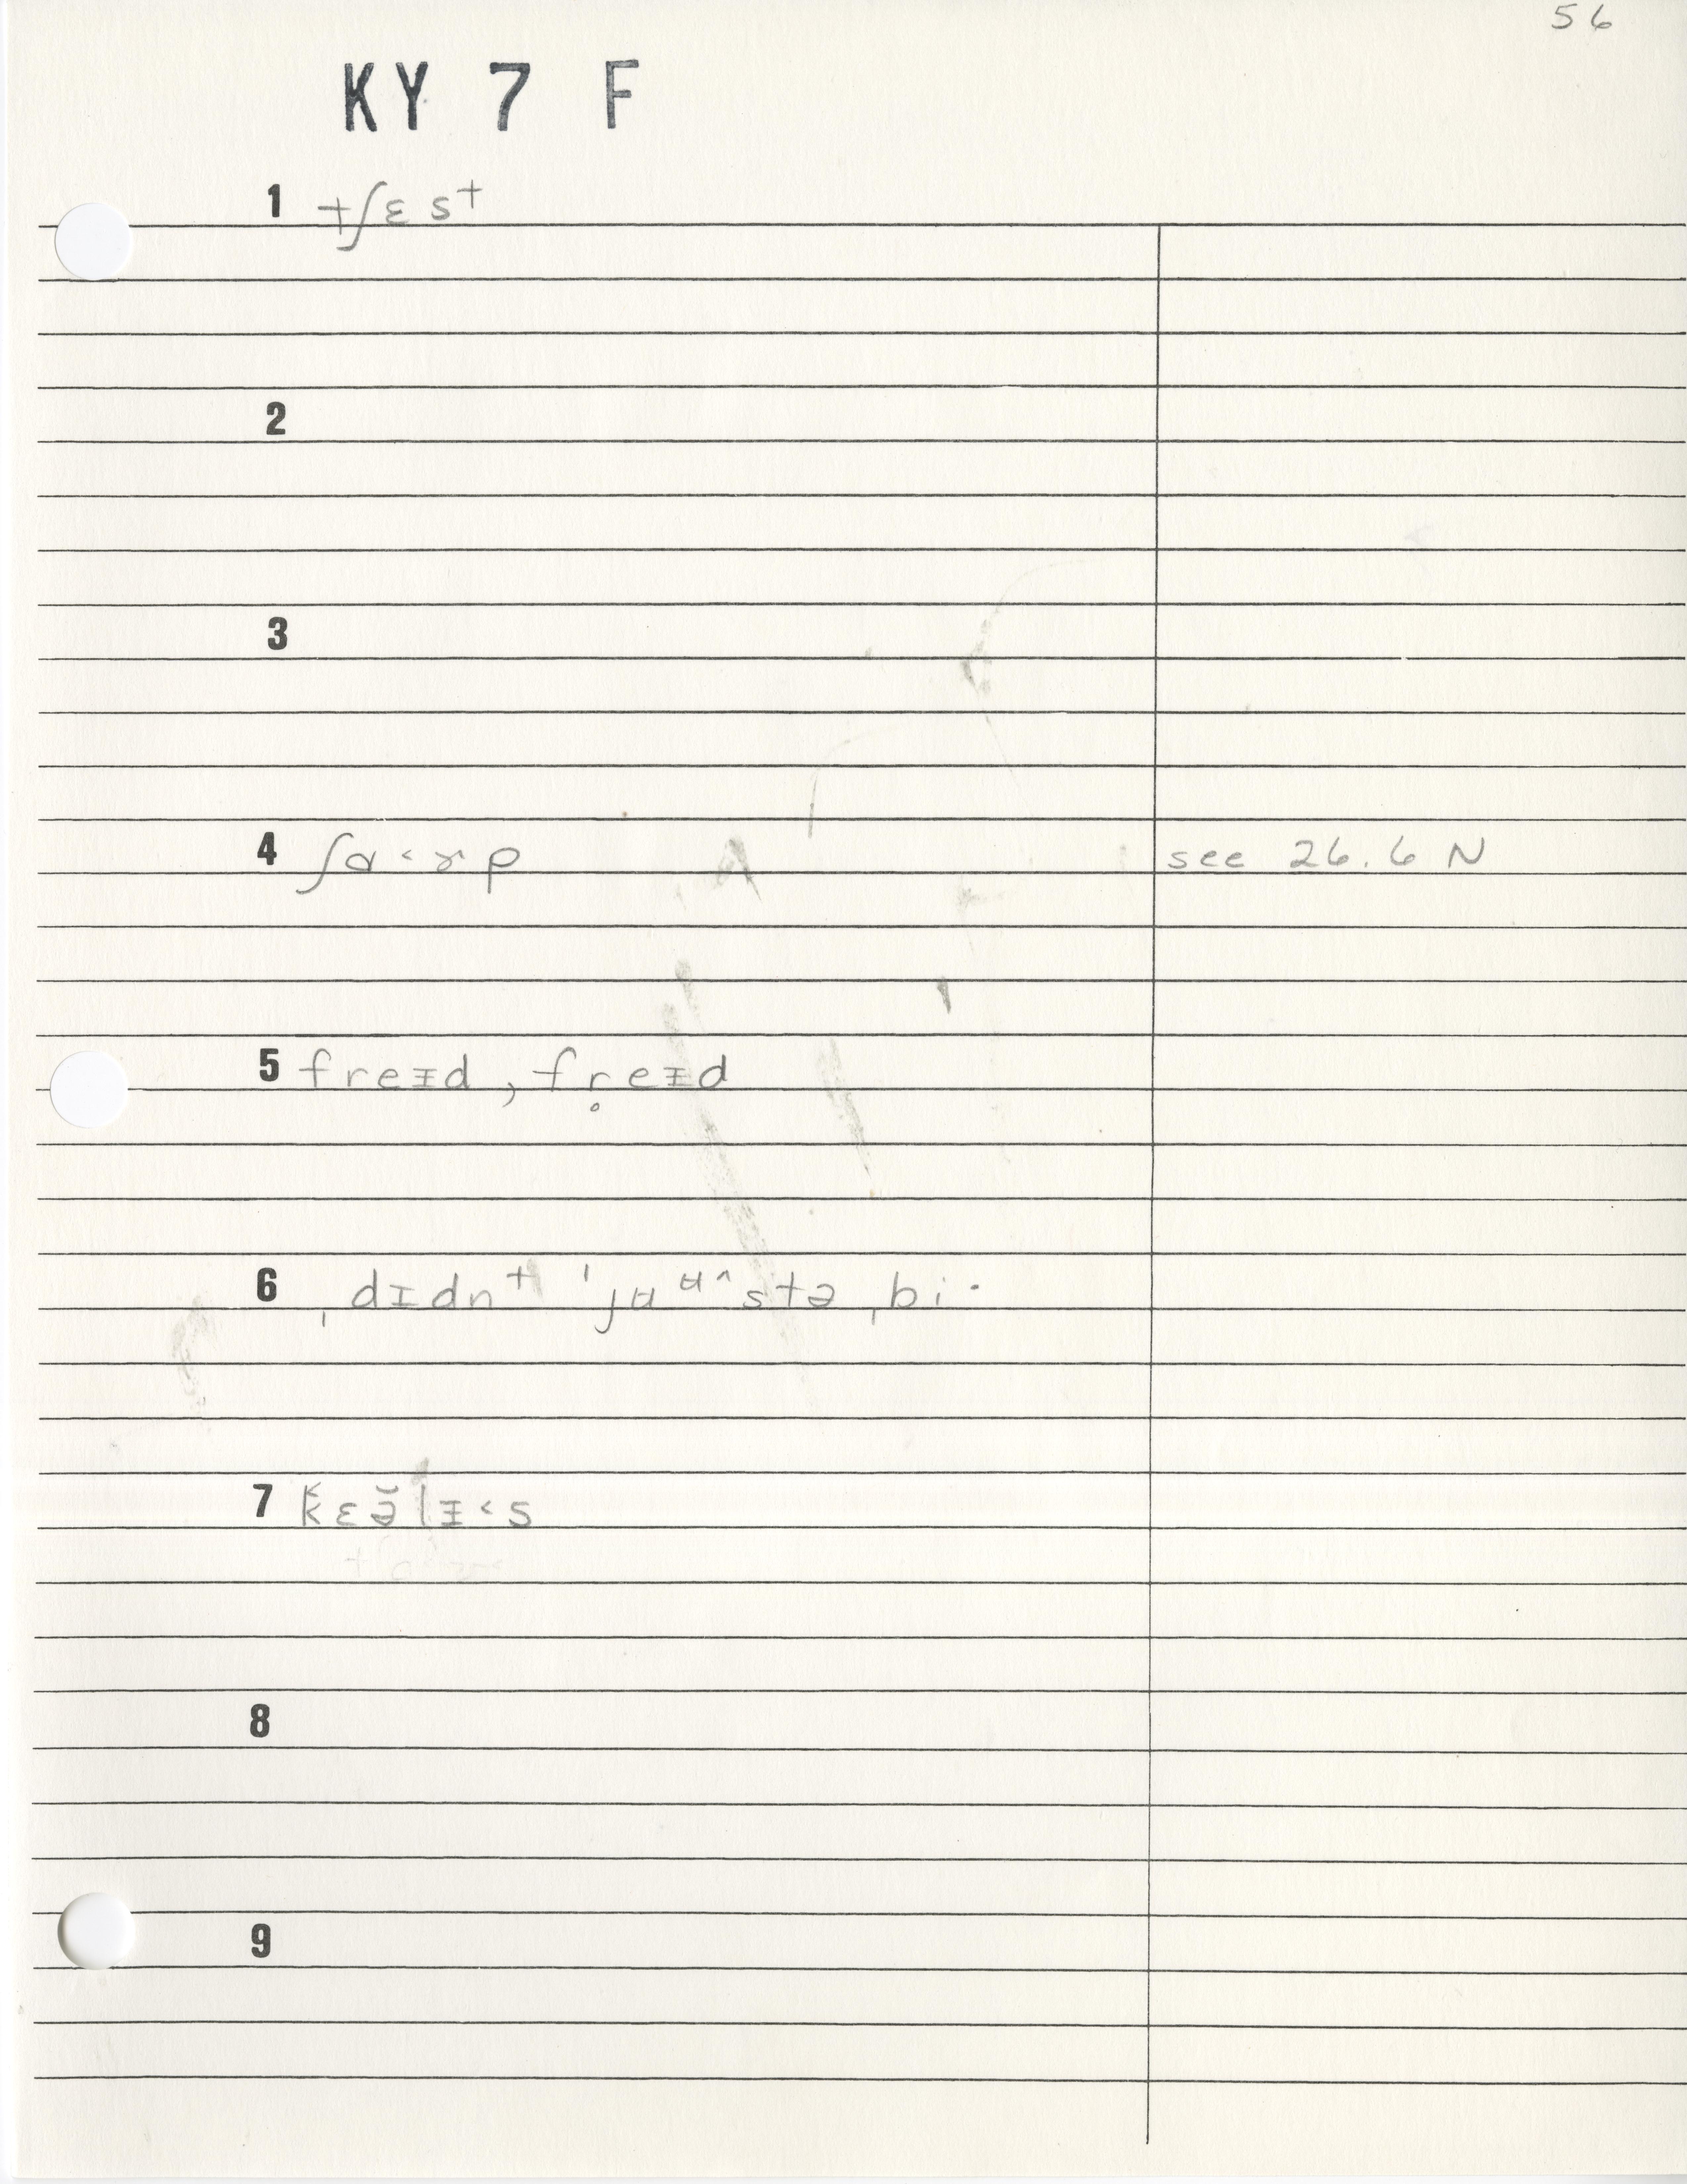 56
KY 7 F
1 tʃɛsᵗ
2
3
4 ʃɑ˂ɚp see 26.6 N
5 freᵻd, fr̥eᵻd
6 ˌdɪdnᵗ ˈjʉᶶ^stə ˌbi·
7 k̆ɛə̆lᵻ˂s
8
9